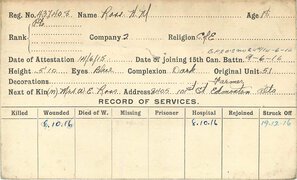 Reg. No. A37403 Name Ross, A.M. Age
Rank Pte Company 2 Religion C of E
Date of Attestation 14/6/15 Date of joining 15th Can. Battn. 9-6-16
Height 5'10 Eyes Blue Complexion Dark Original Unit 51
Decorations Farmer
Next of Kin (m) Mrs. A. E. Ross Address St Edmonton Alta
RECORD OF SERVICES.
Killed Wounded Died of W. Missing Prisoner Hospital Rejoined Struck Off
8.10.16 8.10.16 19-12-16